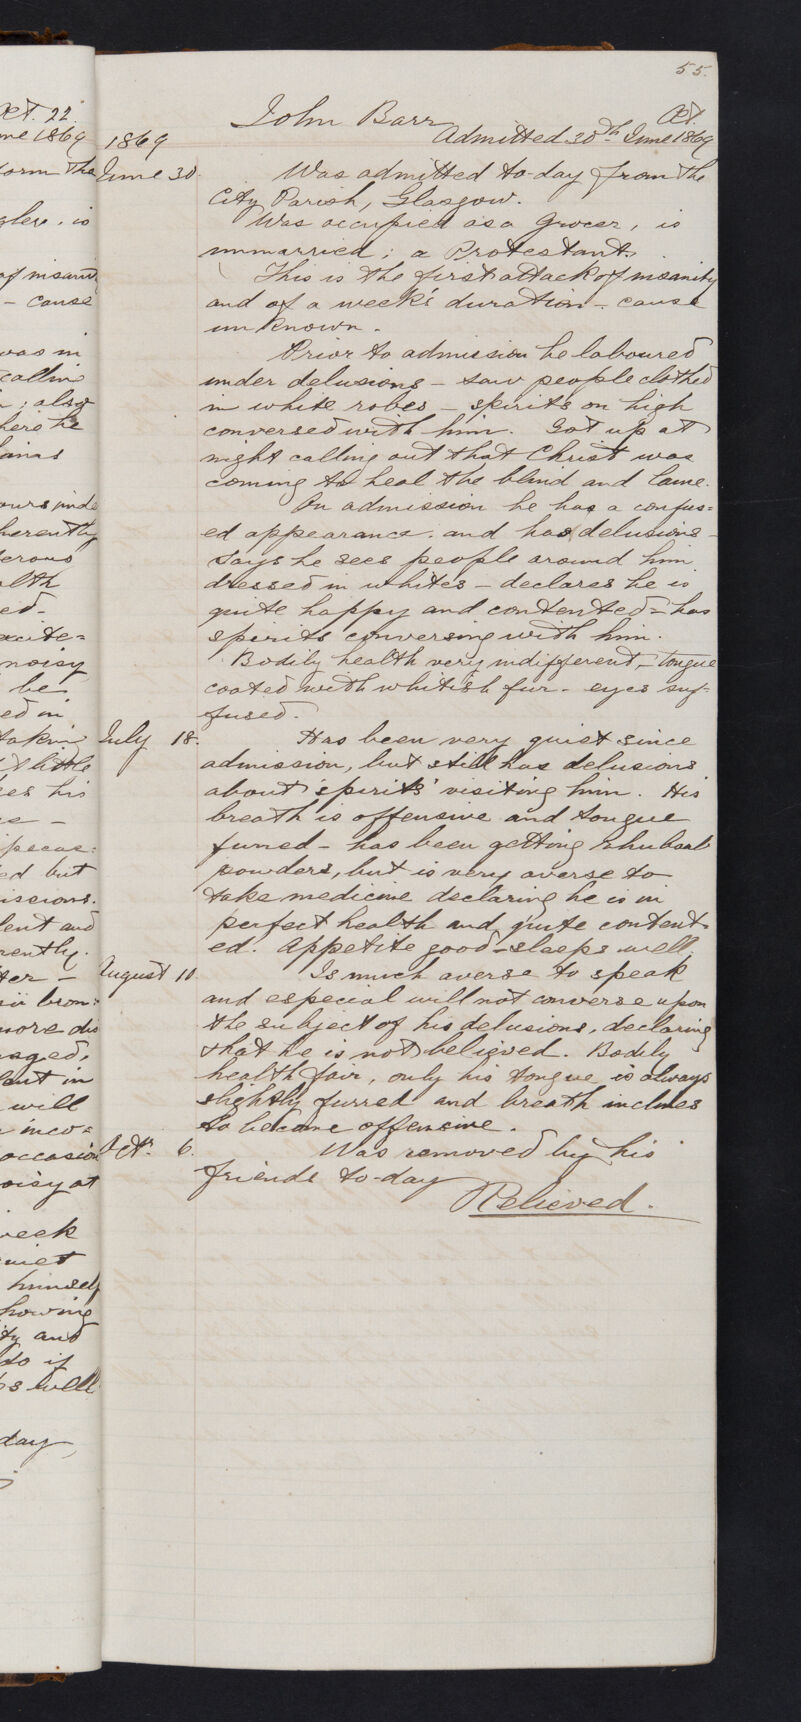 55.
John Barr
Æt.
1869
Admitted 30th June 1869
June 30. Was admitted to-day from the
City Parish, Glasgow.
Was occupied as a Grocer, is
unmarried; a Protestant.
This is the first attack of insanity
and of a week's duration - cause
unknown.
Prior to admission he laboured
under delusions - saw people clothed
in white robes - spirits on high
conversed with him. Got up at
night calling out that Christ was
coming to heal the blind and lame.
On admission he has a confus=
ed appearance. and has delusions -
says he sees people around him
dressed in whites - declares he is
quite happy and contented - has
spirits conversing with him.
Bodily health very indifferent, - tongue
coated with whitish fur - eyes suf-
fused.
July 18. Has been very quiet since
admission, but still has delusions
about 'spirits' visiting him. His
breath is offensive and tongue
furred - has been getting rhubarb
powders, but is very averse to
take medicine declaring he is in
perfect health and quite content-
ed. Appetite good - sleeps well.
August 10. Is much averse to speak
and especial will not converse upon
the subject of his delusions, declaring
that he is not believed. Bodily
health fair, only his tongue is always
slightly furred and breath inclines
to become offensive.
Oct. 6. Was removed by his
friends to-day
Relieved.